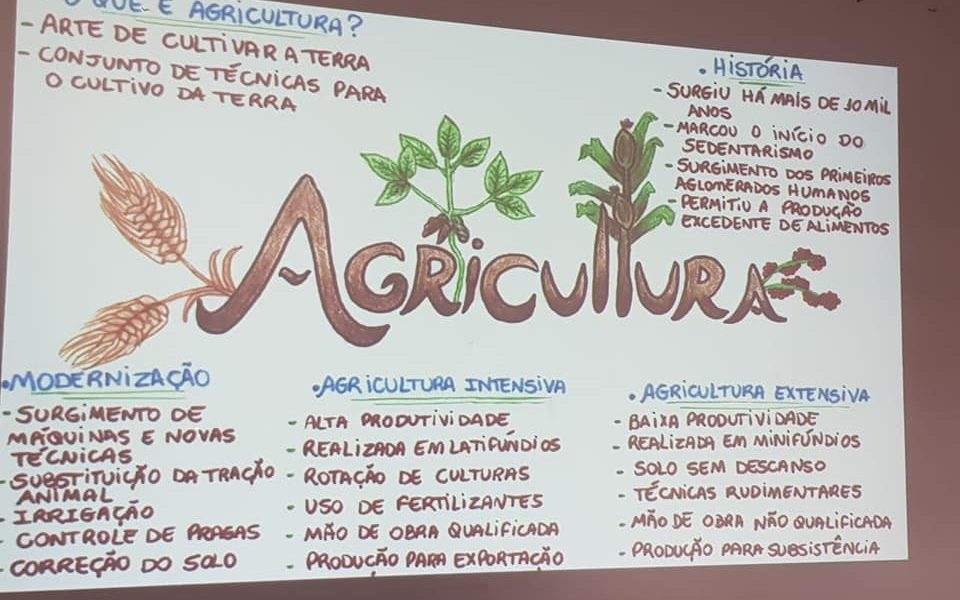 O QUE É AGRICULTURA?
- ARTE DE CULTIVAR A TERRA
- CONJUNTO DE TÉCNICAS PARA
O CULTIVO DA TERRA
• HISTÓRIA
- SURGIU HÁ MAIS DE 10 MIL
ANOS
- MARCOU O INÍCIO DO
SEDENTARISMO
- SURGIMENTO DOS PRIMEIROS
AGLOMERADOS HUMANOS
- PERMITIU A PRODUÇÃO
EXCEDENTE DE ALIMENTOS
AGRICULTURA
• MODERNIZAÇÃO
- SURGIMENTO DE
MÁQUINAS E NOVAS
TÉCNICAS
- SUBSTITUIÇÃO DA TRAÇÃO
ANIMAL
- IRRIGAÇÃO
- CONTROLE DE PRAGAS
- CORREÇÃO DO SOLO
• AGRICULTURA INTENSIVA
- ALTA PRODUTIVIDADE
- REALIZADA EM LATIFÚNDIOS
- ROTAÇÃO DE CULTURAS
- USO DE FERTILIZANTES
- MÃO DE OBRA QUALIFICADA
- PRODUÇÃO PARA EXPORTAÇÃO
• AGRICULTURA EXTENSIVA
- BAIXA PRODUTIVIDADE
- REALIZADA EM MINIFÚNDIOS
- SOLO SEM DESCANSO
- TÉCNICAS RUDIMENTARES
- MÃO DE OBRA NÃO QUALIFICADA
- PRODUÇÃO PARA SUBSISTÊNCIA